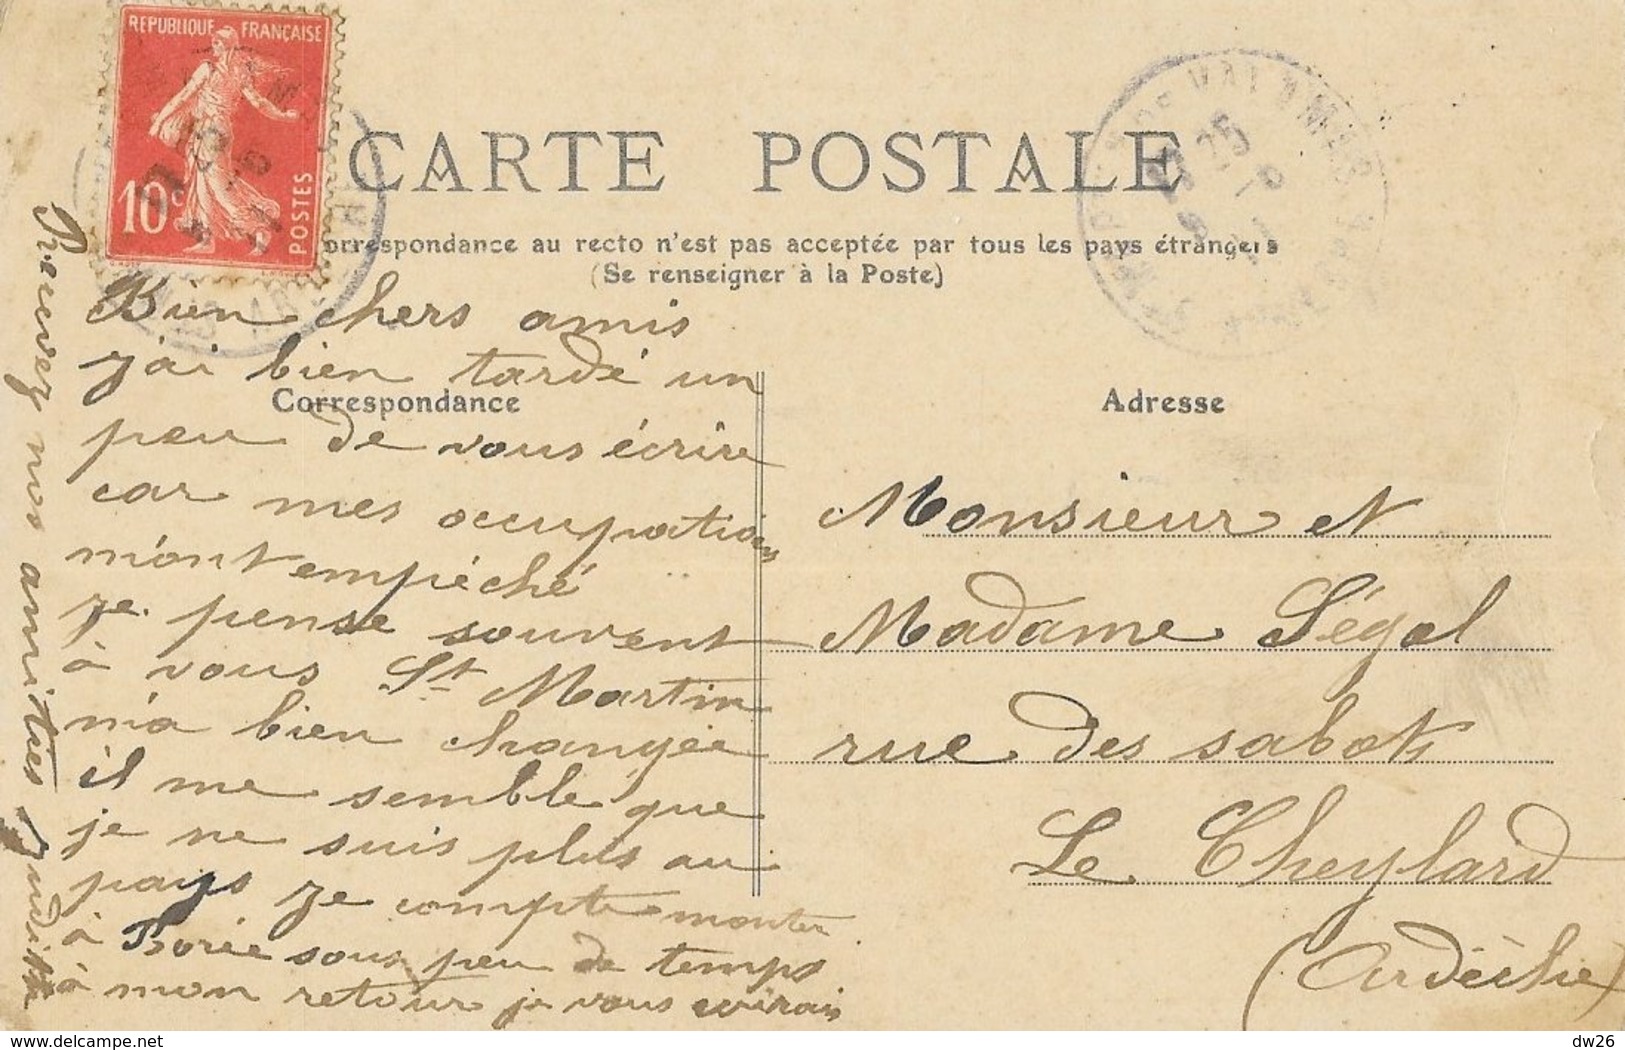 REPUBLIQUE FRANÇAISE
10c
POSTES
CARTE POSTALE
orrespondance au recto n'est pas acceptée par tous les pays étrangers
(Se renseigner à la Poste)
Correspondance
Adresse
Bien chers amis
j'ai bien tardé un
peu de vous écrire
car mes occupations
m'ont empéché
je pense souvent
à vous St Martin
m'a bien changée
il me semble que
je ne suis plus au
pays je compte monter
à Borée sous peu de temps
à mon retour je vous ecrirais
Recevez nos amitiés
Monsieur et
Madame Ségal
rue des sabots
Le Cheylard
(Ardèche)
dw26